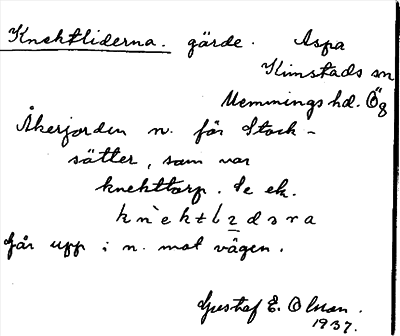 Knektliderna. gärde. Aspa
Kimstads sn
Memmings hd. Ög
Åkerjorden n. för Stock-
sätter, som var
knekttorp. Se ek.
knèktlzdɜra
Går upp i n. mot vägen.
Gustaf E. Olsson.
1937.